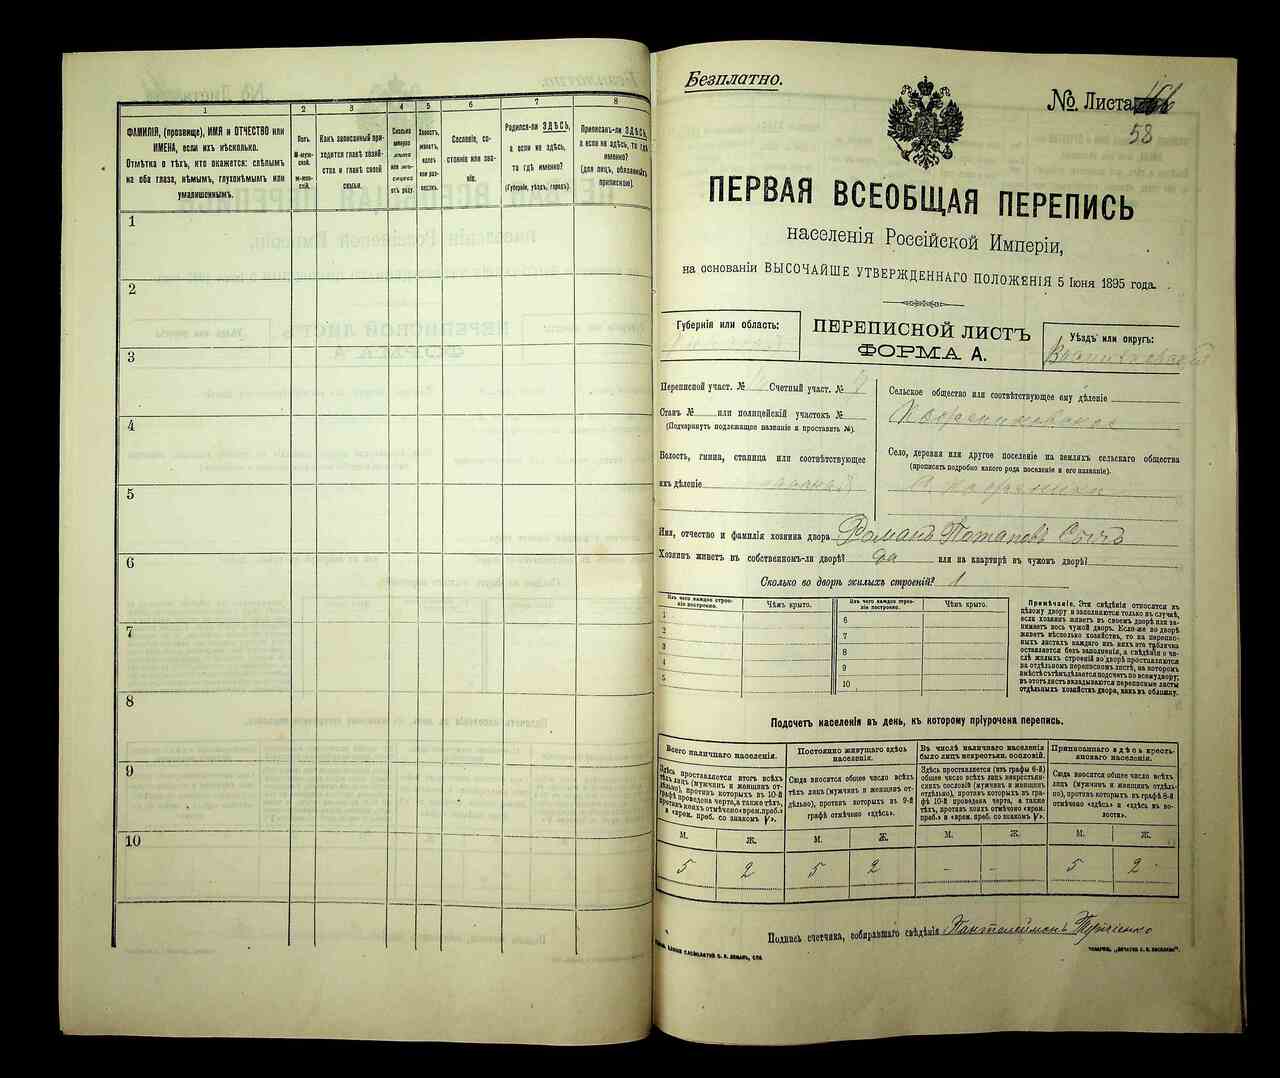 1
2
3
4
5
6
7
8
ФАМИЛІЯ, (прозвище), ИМЯ и ОТЧЕСТВО или
ИМЕНА, если ихъ нѣсколько.
Отмѣтка о тѣхъ, кто окажется: слѣпымъ
на оба глаза, нѣмымъ, глухонѣмымъ или
умалишеннымъ.
Полъ.
М-муж-
ской.
Ж-жен-
скій.
Какъ записанный при-
ходится главѣ хозяй-
ства и главѣ своей
семьи.
Сколько
минуло
лѣтъ
или мѣ-
сяцевъ
отъ роду.
Холостъ,
женатъ,
вдовъ
или раз-
веденъ.
Сословіе, со-
стояніе или зва-
ніе.
Родился-ли ЗДѢСЬ,
а если не здѣсь,
то гдѣ именно?
(Губернія, уѣздъ, городъ).
Приписанъ-ли ЗДѢСЬ,
а если не здѣсь, то гдѣ
именно?
(для лицъ, обязанныхъ
припискою).
1
2
3
4
5
6
7
8
9
10
Безплатно.
№ Листа
58
ПЕРВАЯ ВСЕОБЩАЯ ПЕРЕПИСЬ
населенія Россійской Имперіи,
на основаніи ВЫСОЧАЙШЕ УТВЕРЖДЕННАГО ПОЛОЖЕНІЯ 5 Іюня 1895 года.
Губернія или область:
ПЕРЕПИСНОЙ ЛИСТЪ
ФОРМА А.
Уѣздъ или округъ:
Переписной участ. № Счетный участ. №
Станъ № или полицейскій участокъ №
(Подчеркнуть подлежащее названіе и проставить №).
Волость, гмина, станица или соотвѣтствующее
ихъ дѣленіе
Сельское общество или соотвѣтствующее ему дѣленіе
Село, деревня или другое поселеніе на земляхъ сельскаго общества
(прописать подробно какого рода поселеніе и его названіе).
Имя, отчество и фамилія хозяина двора Романъ Потаповъ Сычъ
Хозяинъ живетъ въ собственномъ-ли дворѣ? да или на квартирѣ въ чужомъ дворѣ?
Сколько во дворѣ жилыхъ строеній? 1
Изъ чего каждое строе-
ніе построено.
Чѣмъ крыто.
Изъ чего каждое строе-
ніе построено.
Чѣмъ крыто.
1
2
3
4
5
6
7
8
9
10
Примѣчаніе. Эти свѣдѣнія относятся къ
цѣлому двору и заполняются только въ случаѣ,
если хозяинъ живетъ въ своемъ дворѣ или за-
нимаетъ весь чужой дворъ. Если-же во дворѣ
живетъ нѣсколько хозяйствъ, то на перепис-
ныхъ листахъ каждаго изъ нихъ эта табличка
оставляется безъ заполненія, а свѣдѣнія о чи-
слѣ жилыхъ строеній во дворѣ проставляются
на отдѣльномъ переписномъ листѣ, на которомъ
вмѣстѣ съ тѣмъ дѣлается подсчетъ по всему двору;
въ этотъ листъ вкладываются переписные листы
отдѣльныхъ хозяйствъ двора, какъ въ обложку.
Подсчетъ населенія въ день, къ которому пріурочена перепись.
Всего наличнаго населенія.
Постоянно живущаго здѣсь
населенія.
Въ числѣ наличнаго населенія
было лицъ некрестьян. сословій.
Приписаннаго здѣсь кресть-
янскаго населенія.
Здѣсь проставляется итогъ всѣхъ
тѣхъ лицъ (мужчинъ и женщинъ от-
дѣльно), противъ которыхъ въ 10-й
графѣ проведена черта, а также тѣхъ,
противъ коихъ отмѣчено «врем. преб.»
и «врем. преб. со знакомъ V».
Сюда вносится общее число всѣхъ
тѣхъ лицъ (мужчинъ и женщинъ от-
дѣльно), противъ которыхъ въ 9-й
графѣ отмѣчено «здѣсь».
Здѣсь проставляется (изъ графы 6-й)
общее число всѣхъ лицъ некрестьян-
скихъ сословій (мужчинъ и женщинъ
отдѣльно), противъ которыхъ въ гра-
фѣ 10-й проведена черта, а также
тѣхъ, противъ коихъ отмѣчено «врем.
преб.» и «врем. преб. со знакомъ V».
Сюда вносится общее число всѣхъ
лицъ (мужчинъ и женщинъ отдѣль-
но), противъ которыхъ въ графѣ 8-й
отмѣчено «здѣсь» и «здѣсь въ во-
лости».
М. Ж. М. Ж. М. Ж. М. Ж.
5 2 5 2 - - 5 2
Подпись счетчика, собиравшаго свѣдѣнія Пантелеймонъ